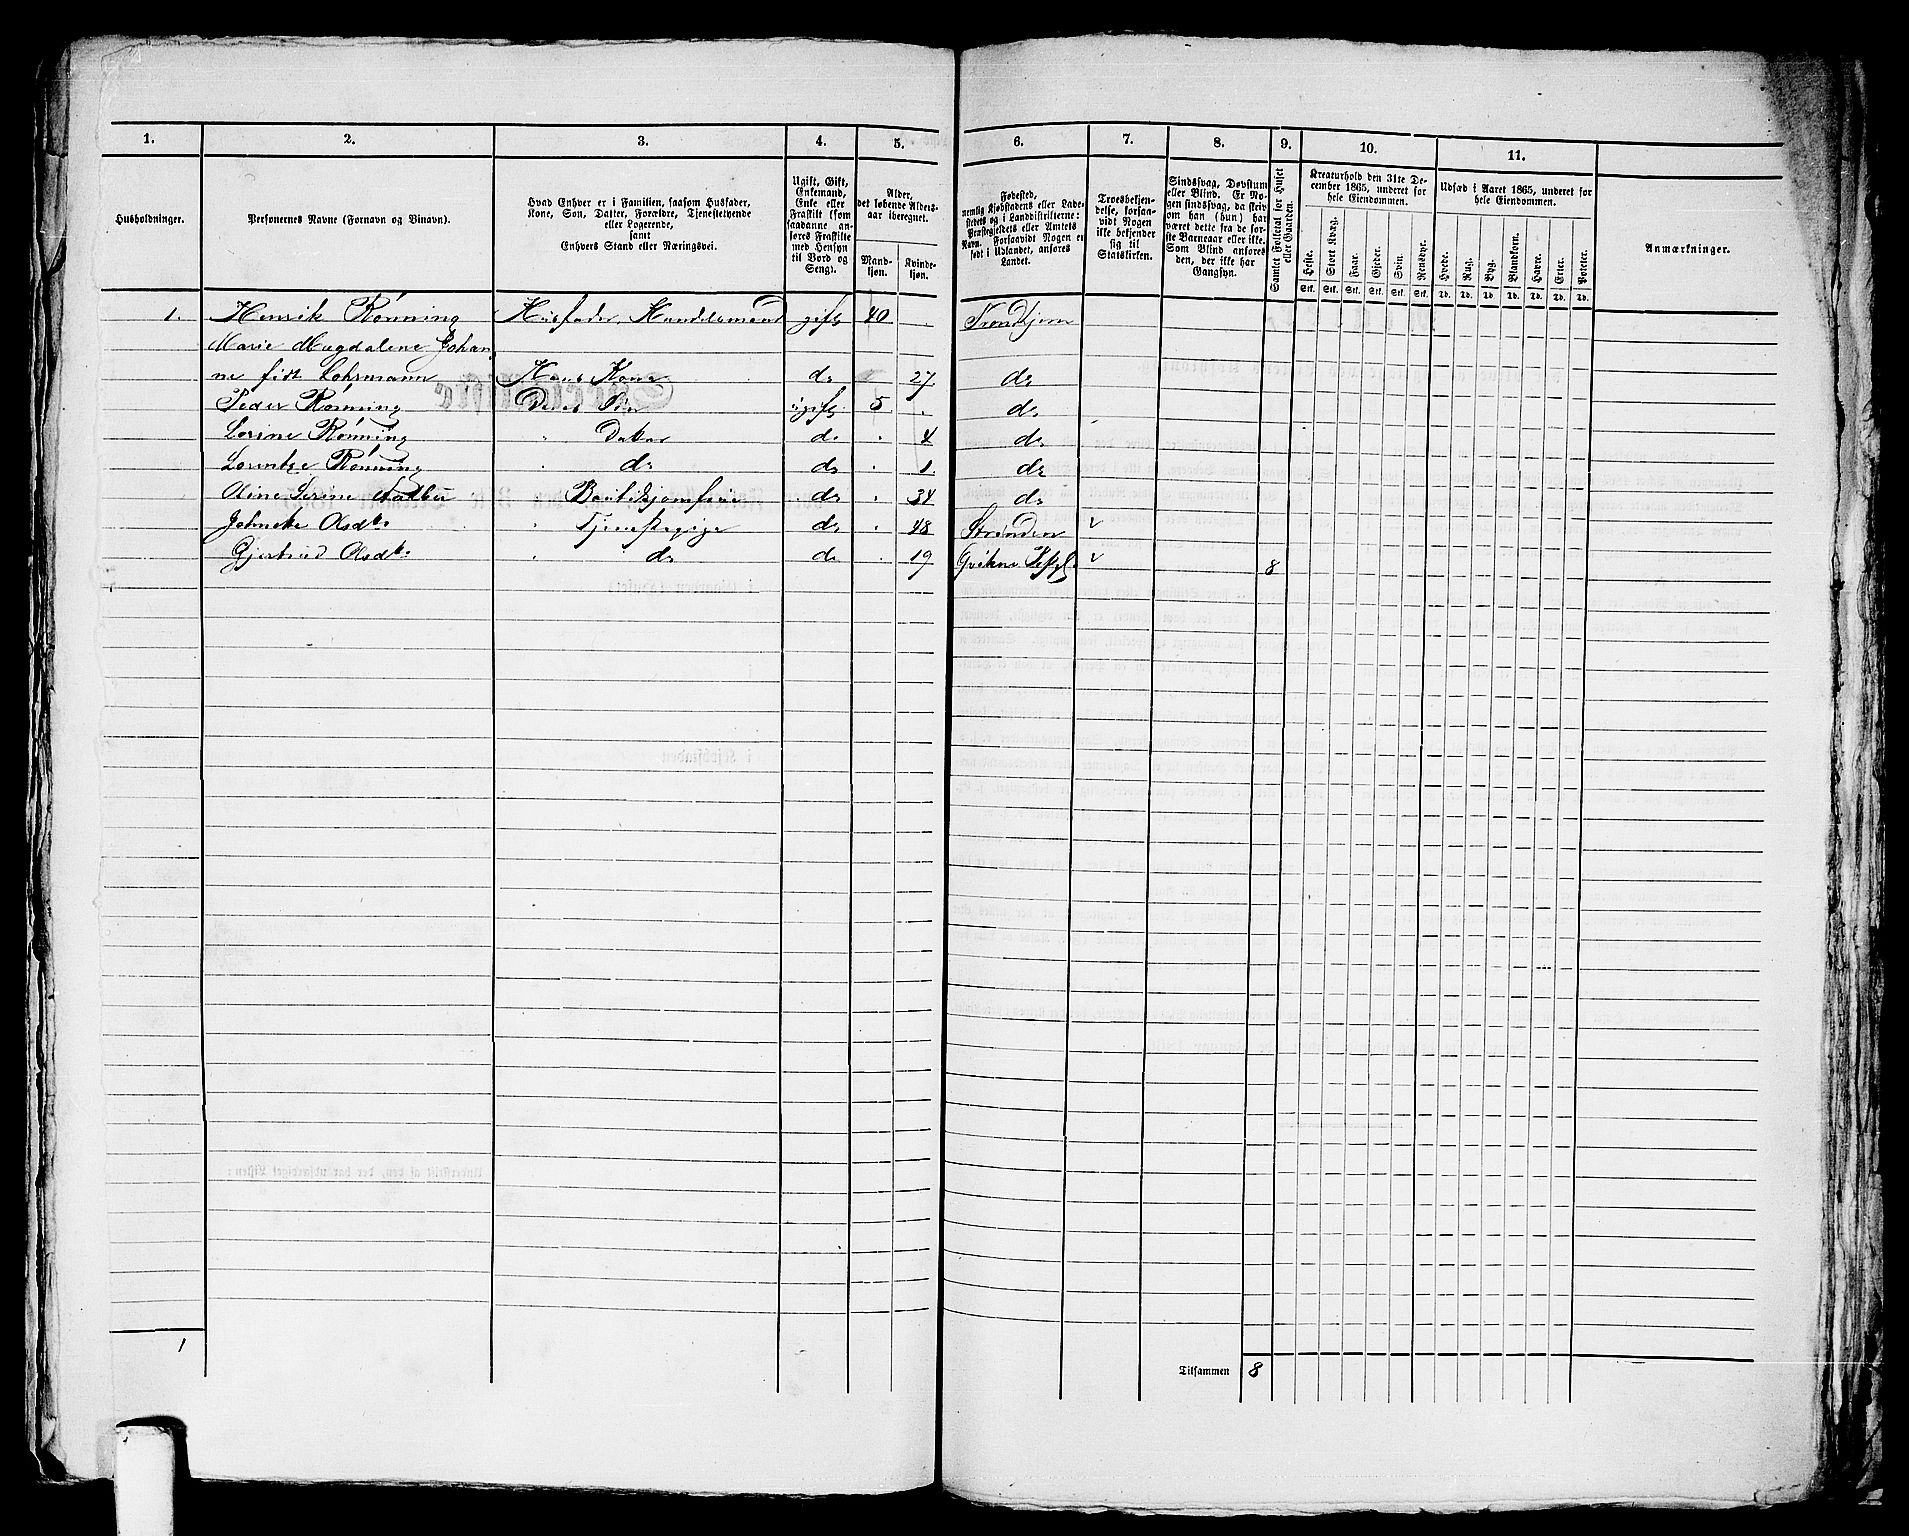 1. 2. 3. 4. 5. 6. 7. 8. 9. 10. 11.
Husholdninger.
Personernes Navne (Fornavn og Tilnavn).
Hvad Enhver er i Familien, saasom Husfader,
Kone, Søn, Datter, Forældre, Tjenestetyende
eller Logerende,
samt
Enhvers Stand eller Næringsvei.
Ugift, Gift,
Enkemand,
Enke eller
Fraskilt (som
saadanne an-
føres Fraskilte
med Hensyn
til Bord og
Seng).
Alder,
det løbende Alders-
aar iberegnet.
Mand-
kjøn.
Kvinde-
kjøn.
Fødested,
nemlig Kjøbstadens eller Lade-
stedets og i Landdistrikterne:
Præstegjeldets eller Amtets
Navn. Forsaavidt Nogen er
født i Udlandet, anføres
Landet.
Troesbekjen-
delse, forsaa-
vidt Nogen
ikke bekjender
sig til
Statskirken.
Sindssvag, Døvstum
eller Blind. Er No-
gen sindssvag, da skriv
om han (hun) har
været dette fra de før-
ste Barneaar eller ikke.
Som Blind anføres
den, der ikke har
Gangsyn.
Samlet Folketal for Huset
eller Gaarden.
Kreaturhold den 31te De-
cember 1865, underet for
hele Eiendommen.
Heste. Stort Kvæg. Faar. Gjeder. Svin. Rensdyr.
Stk. Stk. Stk. Stk. Stk. Stk.
Udsæd i Aaret 1865, underet for
hele Eiendommen.
Hvede. Rug. Byg. Blandkorn. Havre. Erter. Poteter.
Td. Td. Td. Td. Td. Td. Td.
Anmærkninger.
1. Henrik Rønning Husfader, Handelsmand gift 40 . Trondhjem
Marie Magdalene Johan
ne født Lohrmann Hans Kone do 27 do
Peder Rønning Deres Søn ugift 5 . do
Lorine Rønning " Datter do . 4 do
Lorentze Rønning " do do . 1. do
Oline Serine Aalbu Boutikjomfrue do . 34 do
Johneke Olsdtr " Tjenestepige do . 48 Strinden
Gjertrud Olsdtr " do do . 19 Qvikne 8
1
Tilsammen 8